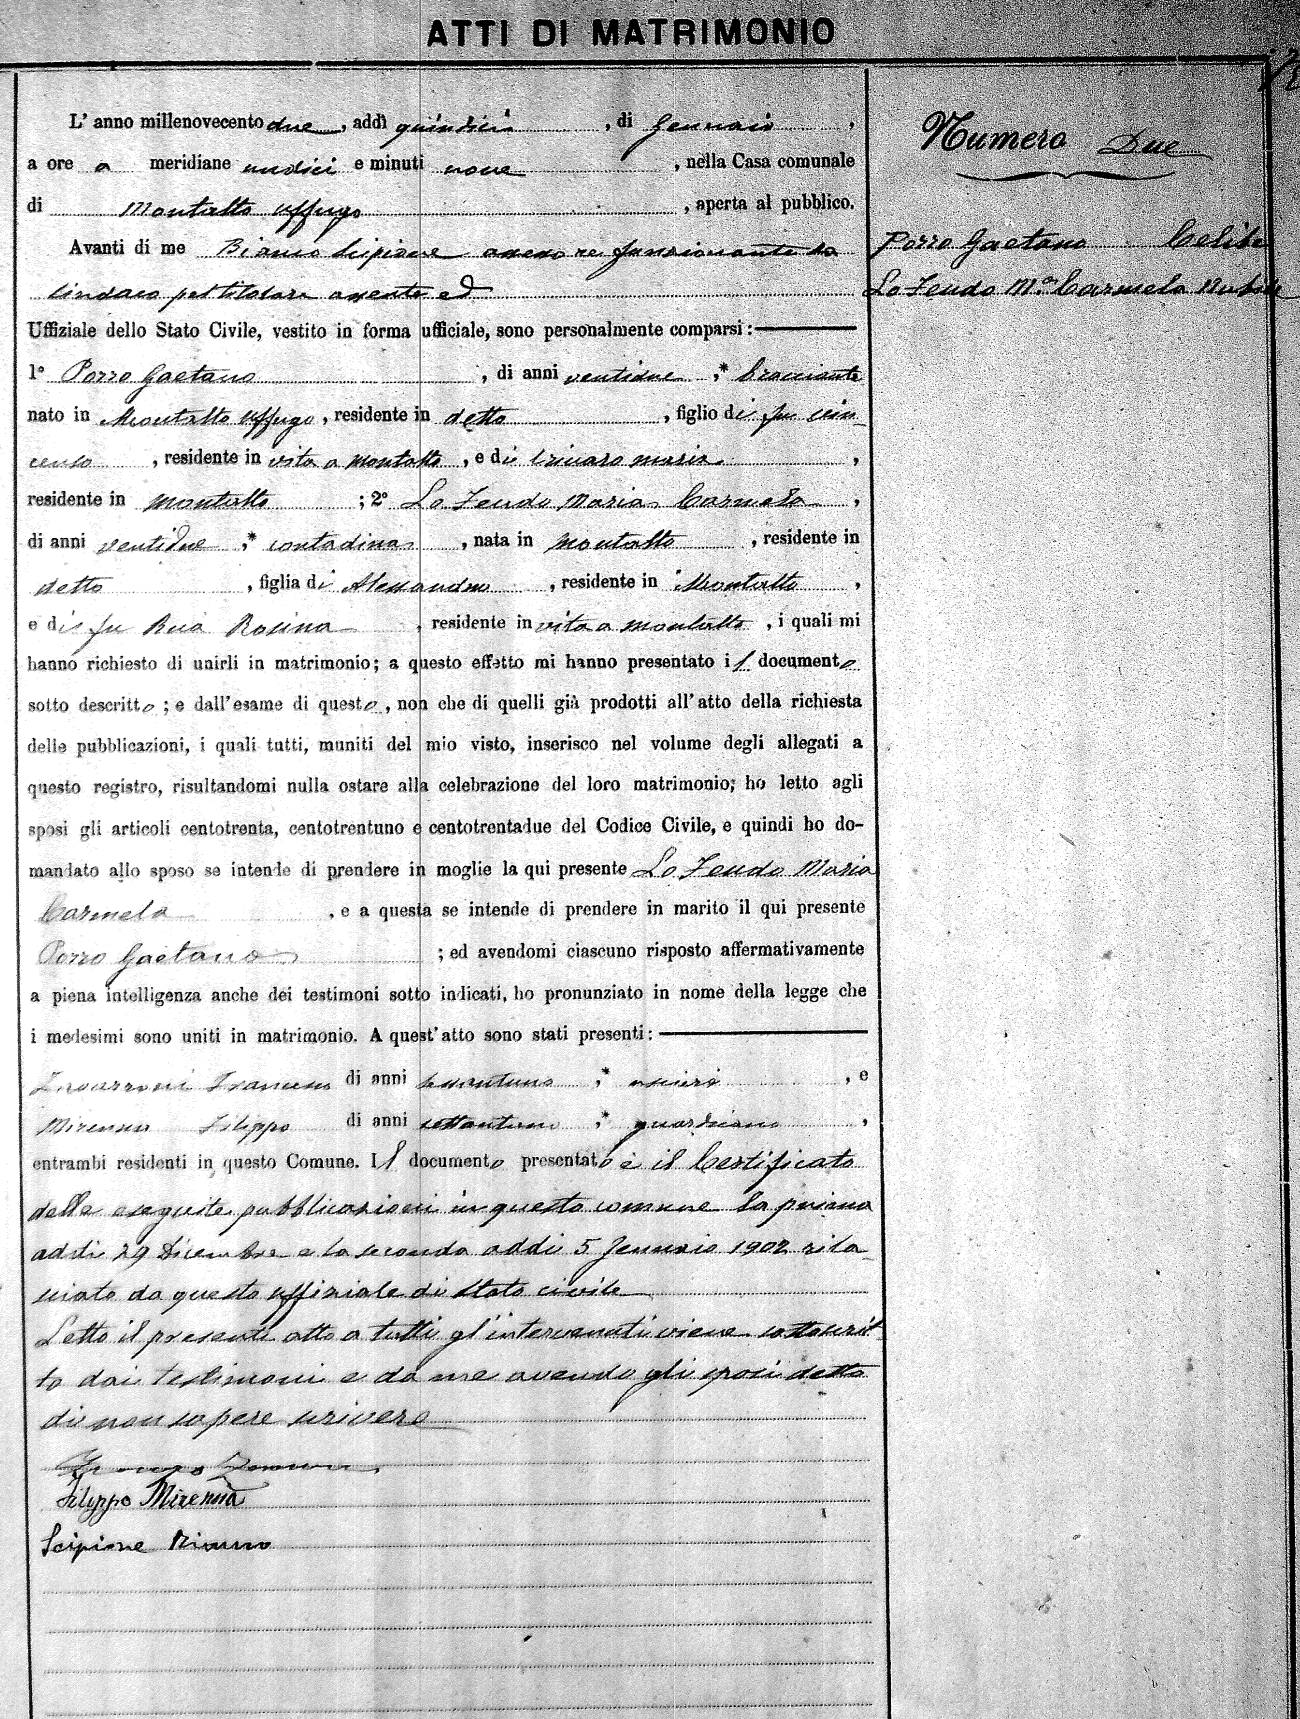 ATTI DI MATRIMONIO
L' anno millenovecento due, addì quindici, di Gennaio,
a ore a meridiane undici e minuti nove, nella Casa comunale
di Montalto Uffugo, aperta al pubblico.
Avanti di me Bianco Scipione assessore funzionante da
sindaco pel titolare assente ed
Uffiziale dello Stato Civile, vestito in forma ufficiale, sono personalmente comparsi:
1° Porro Gaetano, di anni ventidue,* bracciante
nato in Montalto Uffugo, residente in detto, figlio di fu Vin
cenzo, residente in vita a Montalto, e di Crivaro Maria,
residente in Montalto; 2° Lo Feudo Maria Carmela,
di anni ventidue,* contadina, nata in Montalto, residente in
detto, figlia di Alessandro, residente in Montalto,
e di fu Rosina, residente in vita a Montalto, i quali mi
hanno richiesto di unirli in matrimonio; a questo effetto mi hanno presentato il documento
sotto descritto; e dall'esame di questo, non che di quelli già prodotti all'atto della richiesta
delle pubblicazioni, i quali tutti, muniti del mio visto, inserisco nel volume degli allegati a
questo registro, risultandomi nulla ostare alla celebrazione del loro matrimonio; ho letto agli
sposi gli articoli centotrenta, centotrentuno e centotrentadue del Codice Civile, e quindi ho do-
mandato allo sposo se intende di prendere in moglie la qui presente Lo Feudo Maria
Carmela, e a questa se intende di prendere in marito il qui presente
Porro Gaetano; ed avendomi ciascuno risposto affermativamente
a piena intelligenza anche dei testimoni sotto indicati, ho pronunziato in nome della legge che
i medesimi sono uniti in matrimonio. A quest'atto sono stati presenti:
di anni,* usciere, e
Mirenna Filippo di anni settantuno,* guardiano,
entrambi residenti in questo Comune. Il documento presentato è il Certificato
delle eseguite pubblicazioni in questo comune la prima
addì 29 Dicembre e la seconda addì 5 Gennaio 1902 rila
sciato da questo uffiziale di stato civile
Letto il presente atto a tutti gl'intervenuti viene sottoscrit
to dai testimoni e da me avendo gli sposi detto
di non sapere scrivere
Filippo Mirenna
Scipione Bianco
Numero Due
Porro Gaetano Celibe
Lo Feudo Mª Carmela Nubile